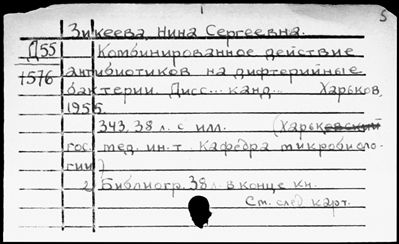 5
Зикеева, Нина Сергеевна.
Д55 Комбинированное действие
1576 антибиотиков на дифтерийные
бактерии. Дисс... канд... Харьков,
1955.
343, 38 л. с илл. (Харьковский
гос. мед. ин-т. Кафедра микробиоло-
гии)
2 Библиогр. 38 л. в конце кн.
См. след. карт.